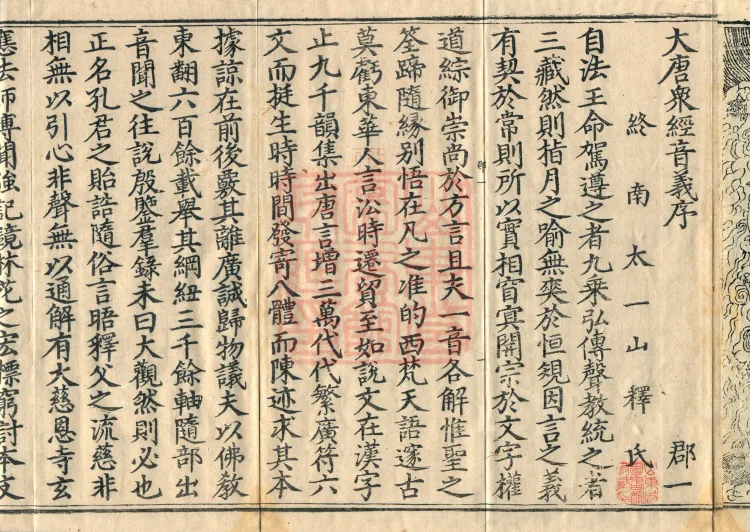 大唐衆經音義序 郡一
終南太一山釋氏
自法王命駕遵之者九乘弘傳聲教統之者
三藏然則指月之喻無爽於恒規因言之義
有契於常則所以實相窅冥開宗於文字權
道綜御崇尚於方言且夫一音各解惟聖之
筌蹄隨緣別悟在凡之准的西梵天語邃古
莫虧東華人言訟時遷貿至如說文在漢字
止九千韻集出唐言增三萬代代繁廣符六
文而挺生時時間發寄八體而陳迹求其本
據諒在前後覈其離廣誠歸物議夫以佛教
東翻六百餘載舉其綱紐三千餘軸隨部出
音聞之往說殷鑒羣錄未曰大觀然則必也
正名孔君之貽誥隨俗言晤釋父之流慈非
相無以引心非聲無以通解有大慈恩寺玄
應法師博聞強記鏡林苑之宏摽窮討本支